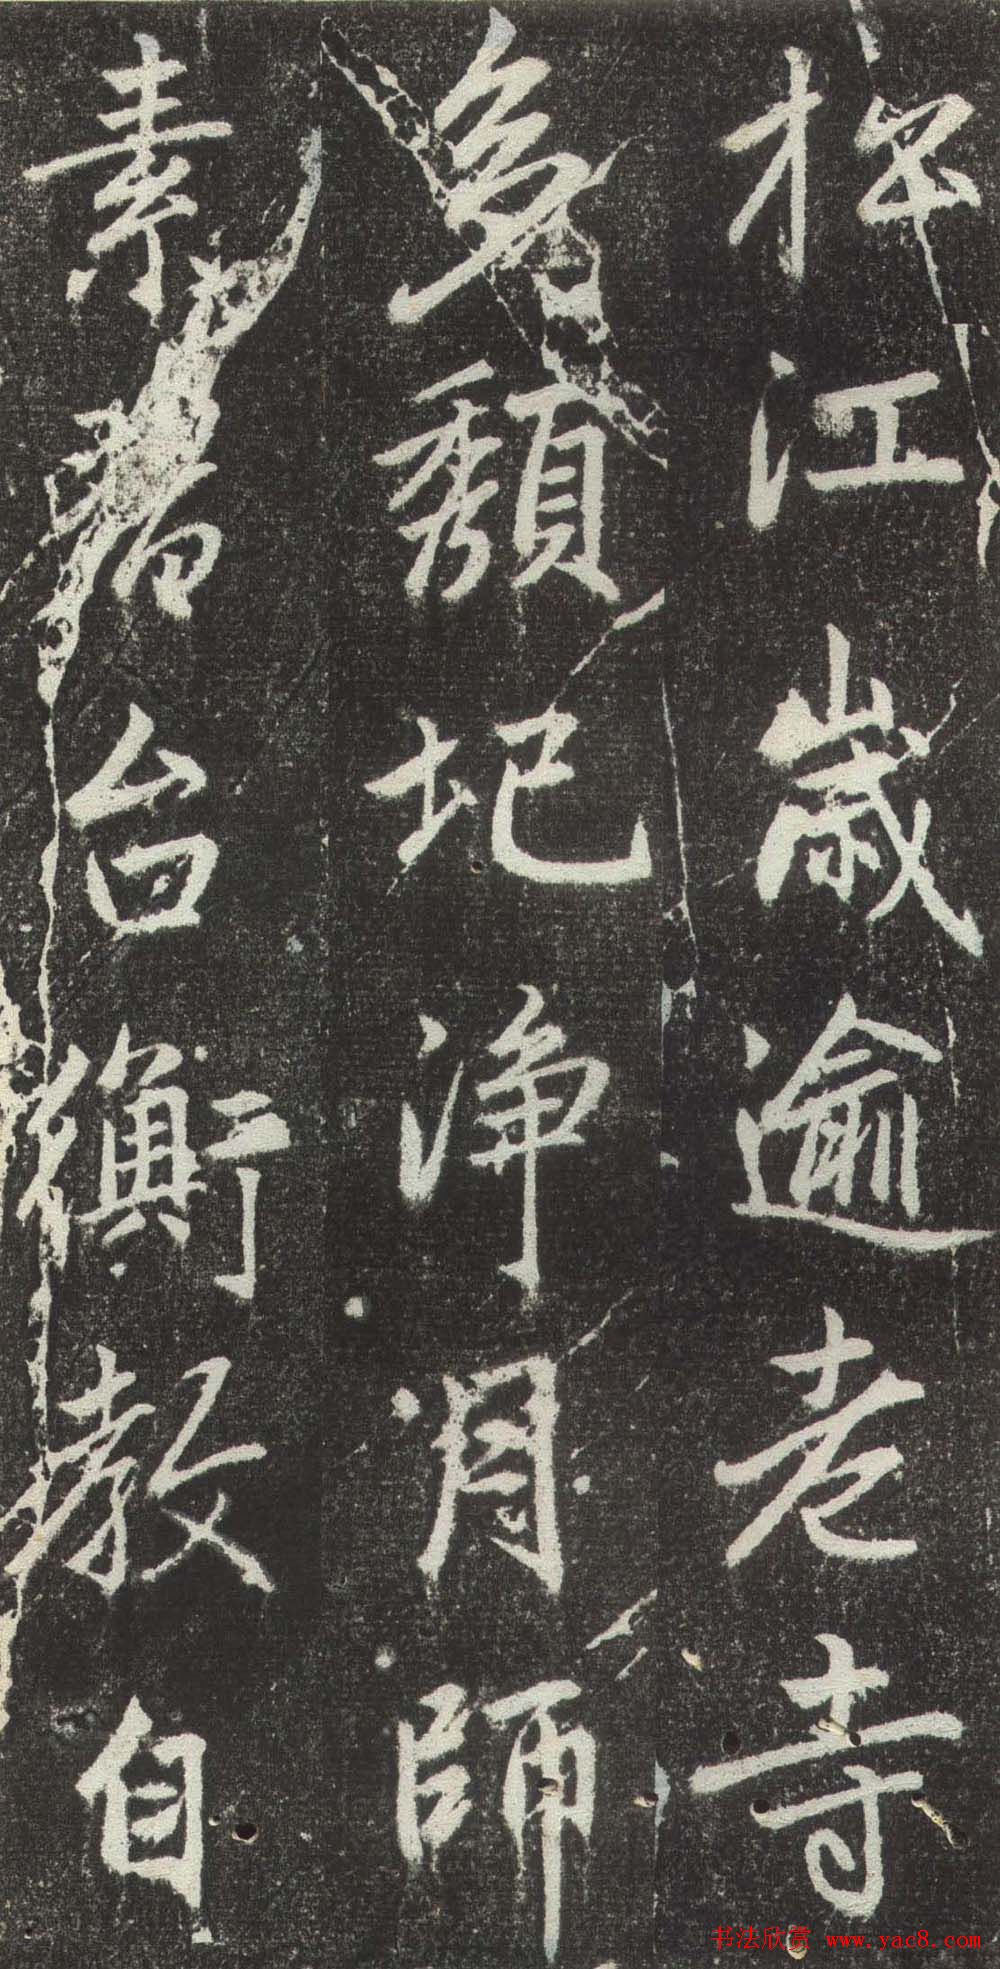 松江歲逾老寺
多頹圮淨月師
素習台衡教自
书法欣赏 www.yac8.com